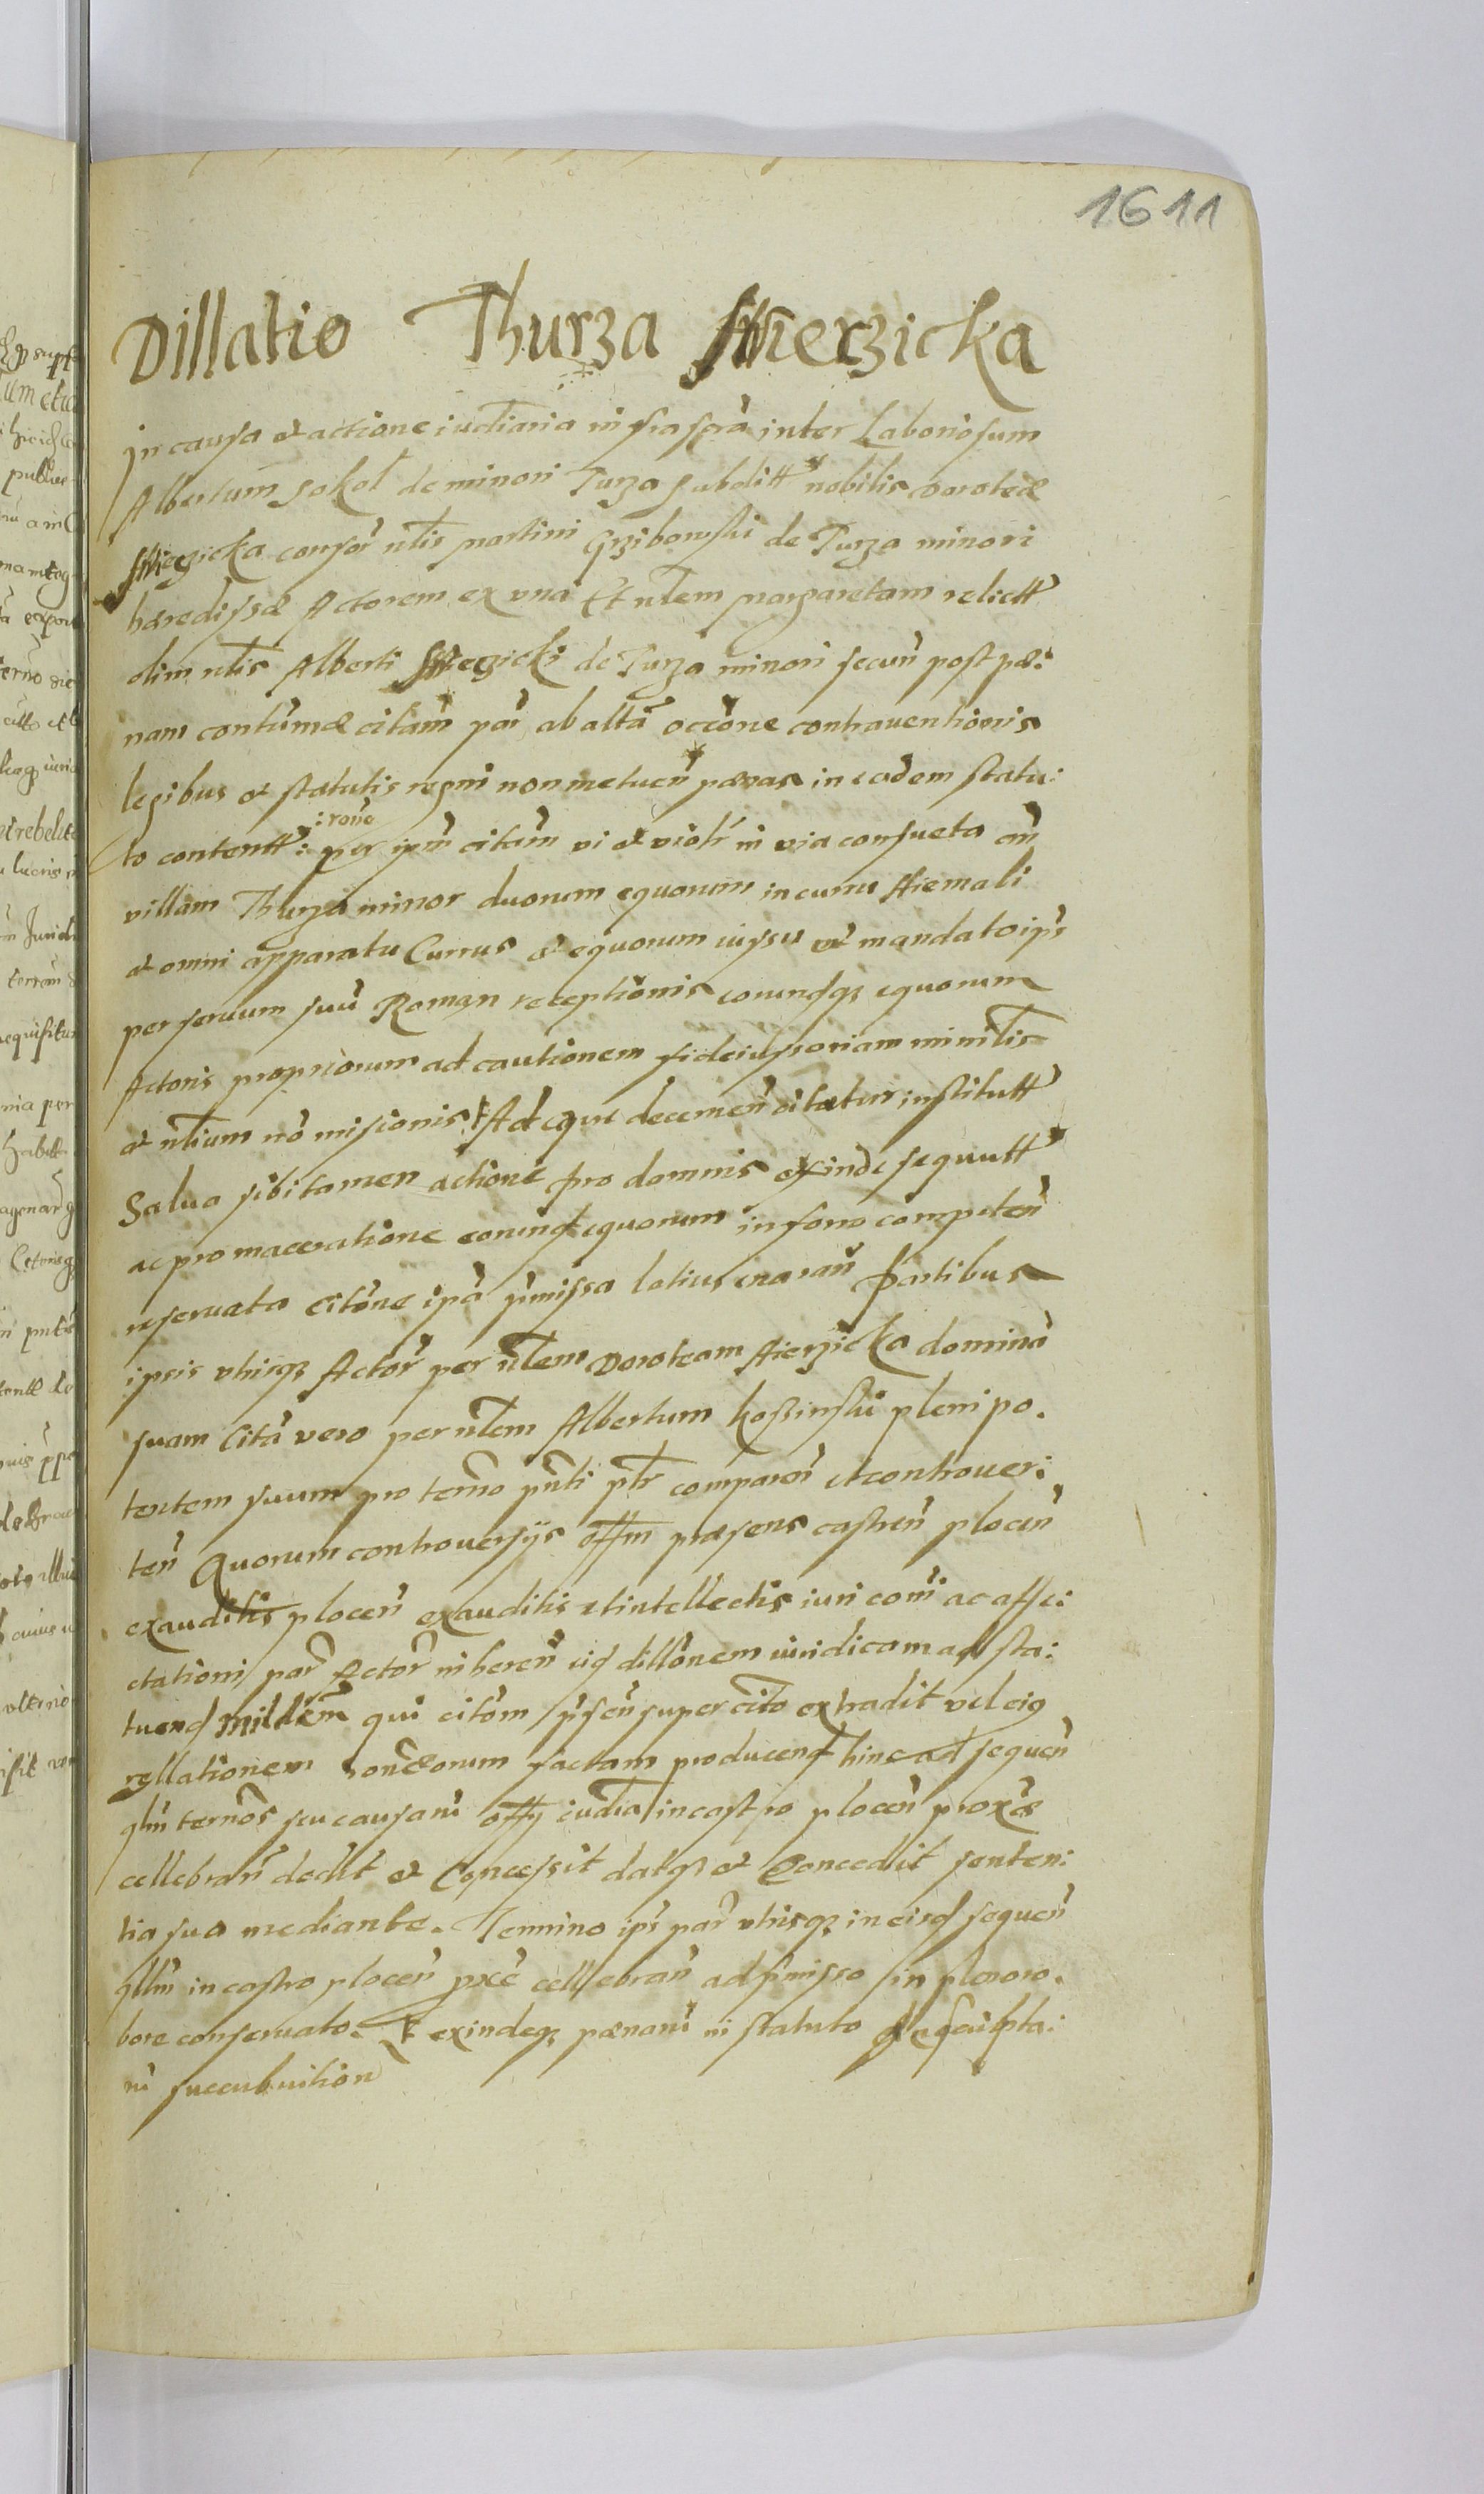 1611
Dillatio Thurza Mierzicka
In causa et actione iudiaria infrascra inter Laboriosum
Albertum Sokoł de minori Turza subditt nobilis Doroteæ
Mierzicka consor nlis Martini Grzibowski de Turza minori
hæredissæ Actorem ex una Et nlem Margaretam relictt
olim nlis Alberti Mierzicki de Turza minori secun post pæ:
nam contumæ citam par ab alta occione contrauentionis
legibus et statutis regni non metuen pænas in eodem statu:
to contentt : rone per ipm citam vi et violr in via consueta an
villam Thurza minor duorum equorum in curru Hiemali
et omni apparatu Currus et equorum iussu et mandato ips
per seruum suu Roman receptionis eorundq equorum
Actoris propriorum ad cautionem fideiussoriam minilis
et nlium no misionis Ad que decernen citatur institutt
Salua sibi tamen actione pro damnis exinde sequutt
ac pro maceratione eorund equorum in foro competen
reseruata citone ipa pmissa latius enaran Partibus
ipsis vtrisq Actor per nlem Doroteam Mierzicka domina
suam Cita vero per nlem Albertum Kossinski plenipo.
tentem suum pro termo pnti ptr comparen et controuer:
ten Quorum controuersijs offm præsens castren plocen
exauditis plocen exauditis et intellectis iuri comi ac affe:
ctationi par Actor inheren eid dillonem iuridicam ad sta:
tuend mildem qui citom psen super cito extradit vel eiq
rellationem coræorum factam producend hinc ad sequen
qlm termos seu causam offij iudia in castro plocen proxæ
cellebran dedit et Concessit datq et Concedit senten:
tia sua mediante. Termino ips par vtrisq in eisd sequen
qllm in castro plocen pxe cellebran ad pmisso in pleno ro.
bore conseruato. Et exindeq pænam in statuto descripta:
m succubuition